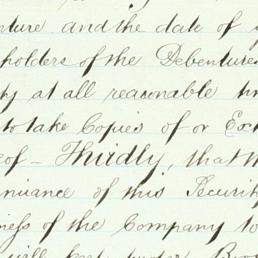 ture and the date of
holders of the Debentures
at all reasonable
to take Copies of or Ext
eof - Thirdly, that th
inuance of this Security
iness of the Company to
will keep proper Boo